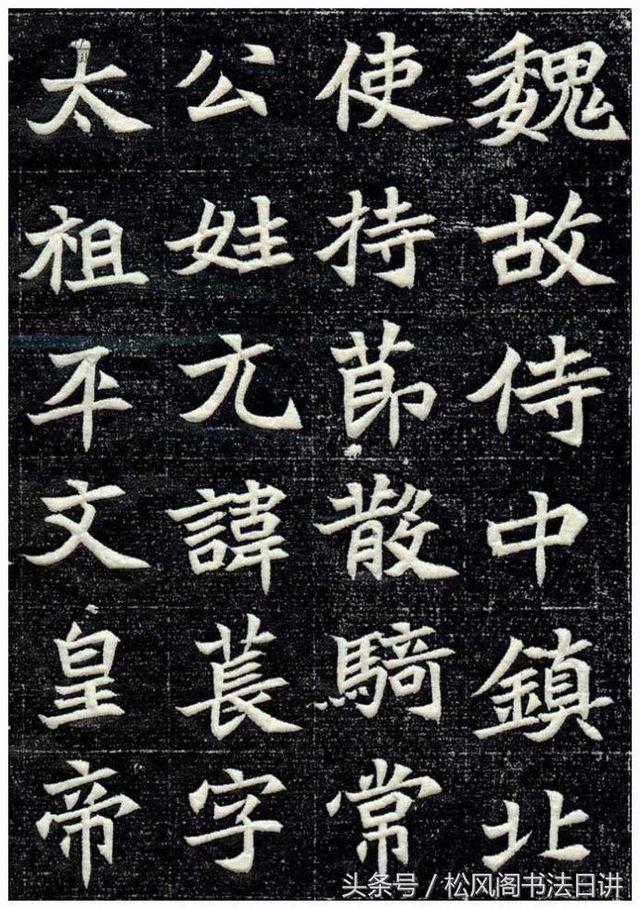 魏故侍中鎮北
使持莭散騎常
公姓元諱萇字
太祖平文皇帝
头条号 / 松风阁书法日讲